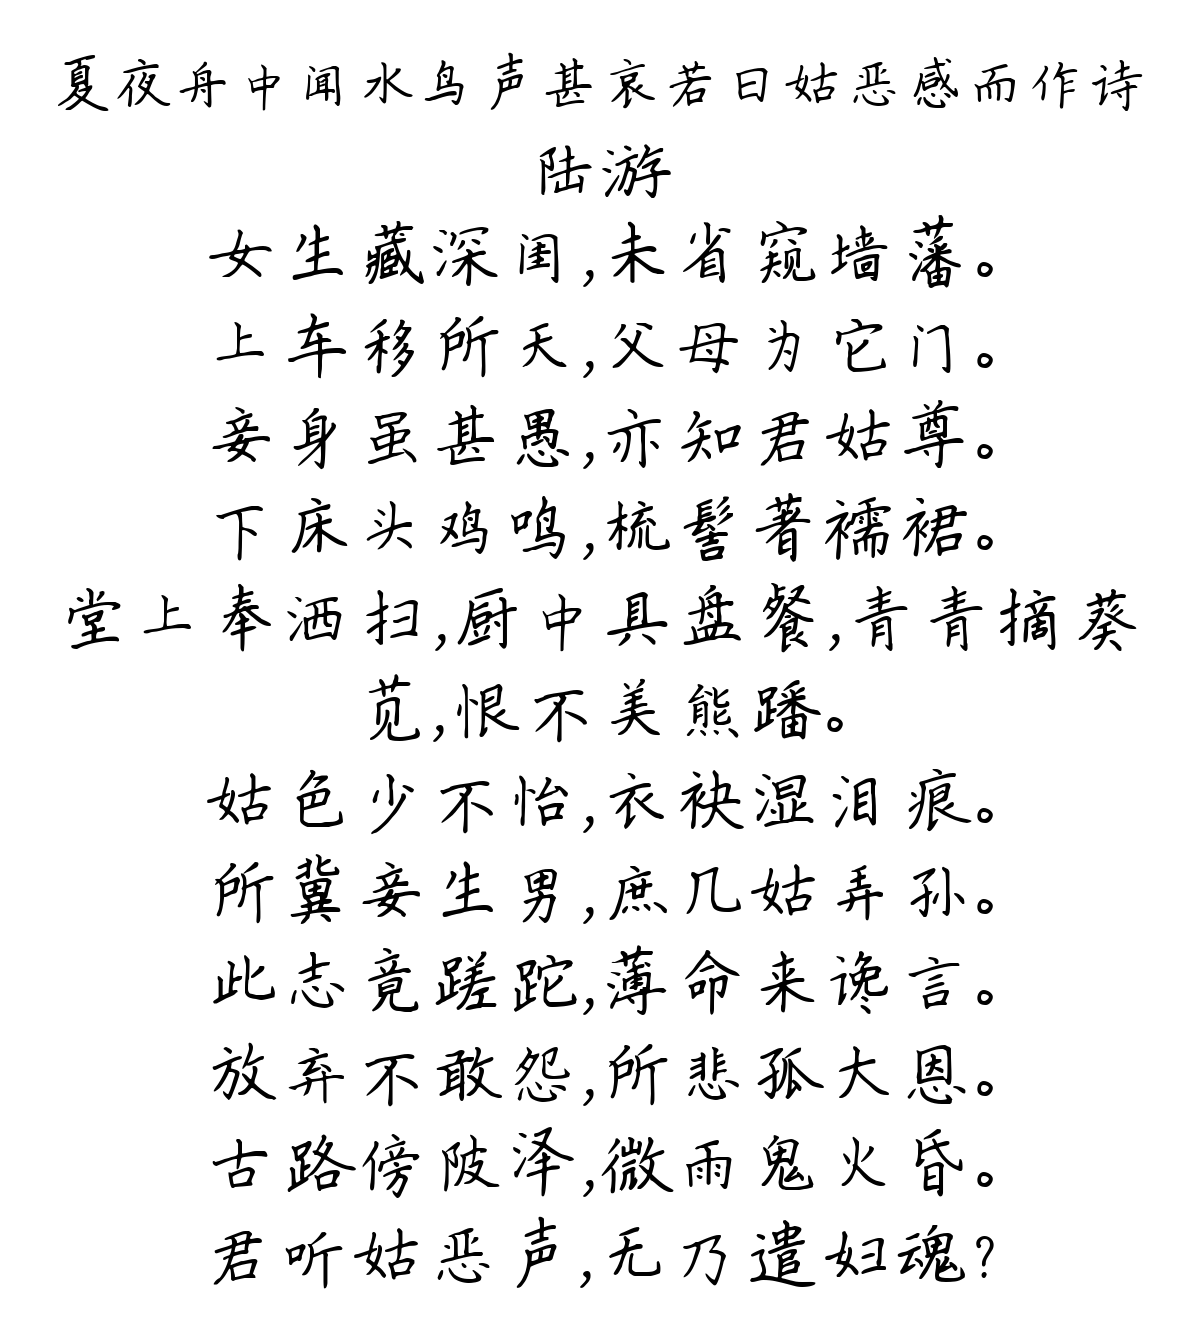 夏夜舟中闻水鸟声甚哀若曰姑恶感而作诗
陆游
女生藏深闺,未省窥墙藩。
上车移所天,父母为它门。
妾身虽甚愚,亦知君姑尊。
下床头鸡鸣,梳髻著襦裙。
堂上奉洒扫,厨中具盘餐,青青摘葵
苋,恨不美熊蹯。
姑色少不怡,衣袂湿泪痕。
所冀妾生男,庶几姑弄孙。
此志竟蹉跎,薄命来谗言。
放弃不敢怨,所悲孤大恩。
古路傍陂泽,微雨鬼火昏。
君听姑恶声,无乃遣妇魂?